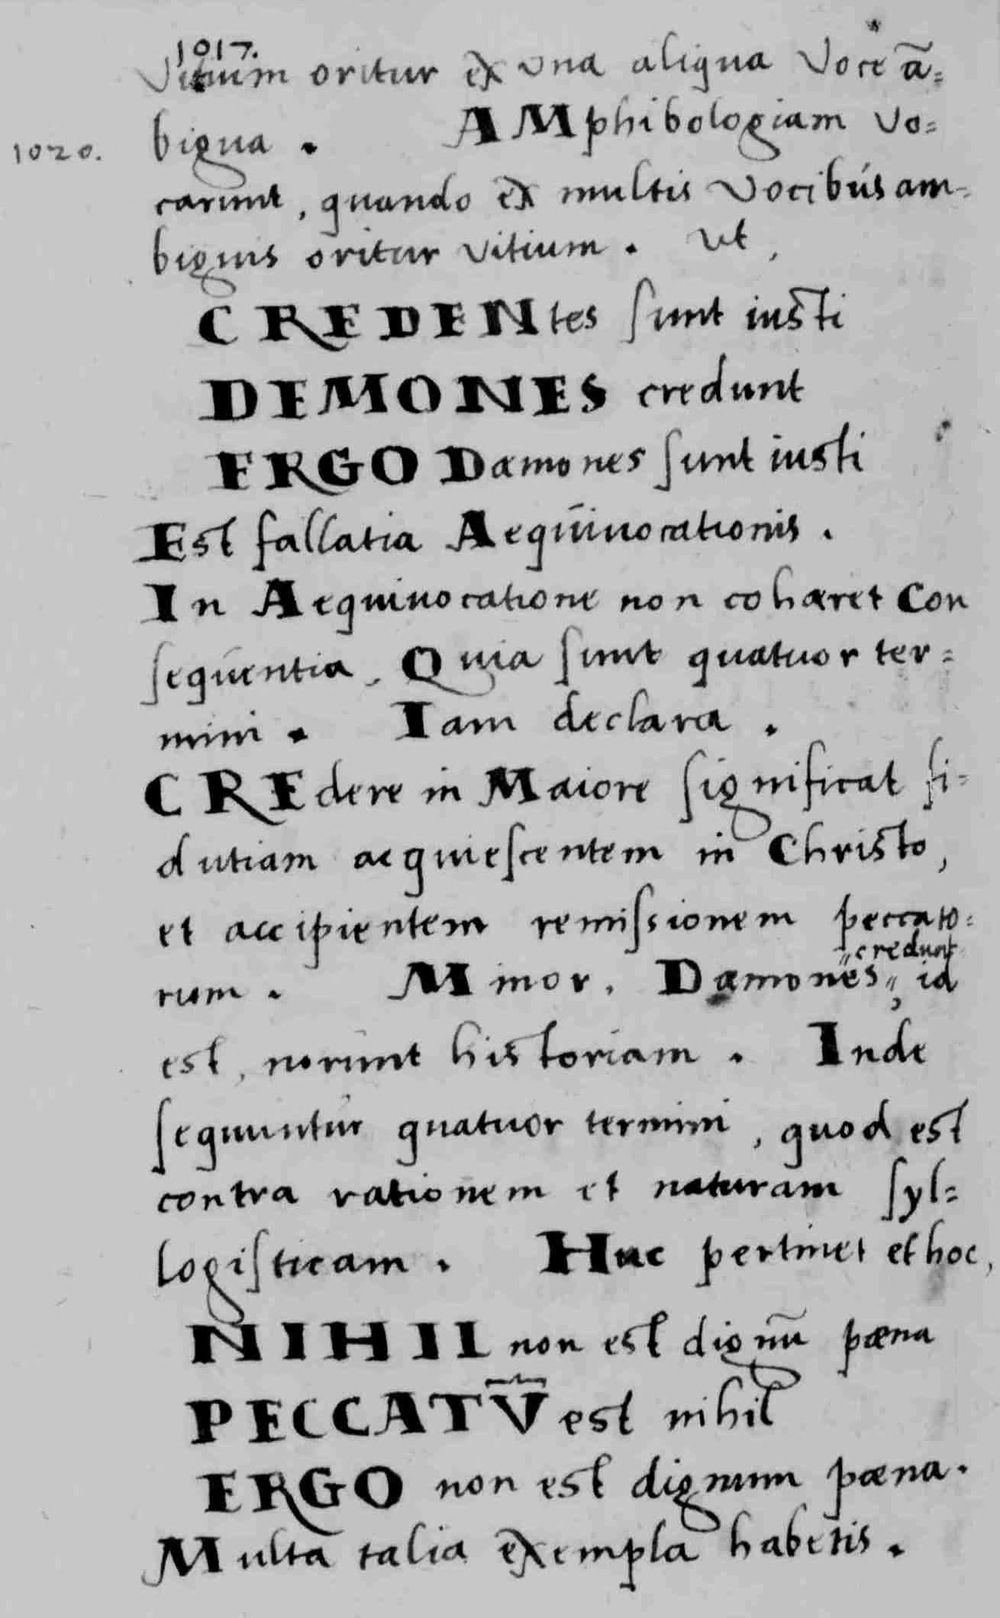 1017.
Vitium oritur ex una aliqua Voce ā=
1020. bigua. AMphibologiam Vo=
carunt, quando ex multis Vocibus am-
biguis oritur vitium. Ut,
CREDENtes sunt iusti
DEMONES credunt
ERGO Dæmones sunt iusti
Est fallatia Aequiuocationis.
In Aequiuocatione non cohæret Con
sequentia, Quia sunt quatuor ter=
mini. Iam declara.
CREdere in Maiore significat fi=
dutiam acquiescentem in Christo,
et accipientem remissionem peccato=
credunt
rum. Minor, Dæmones, id
est, norunt historiam. Inde
sequuntur quatuor termini, quod est
contra rationem et naturam syl=
logisticam. Huc pertinet et hoc,
NIHIL non est dignū pæna
PECCATŪ est nihil
ERGO non est dignum pæna.
Multa talia exempla habetis.